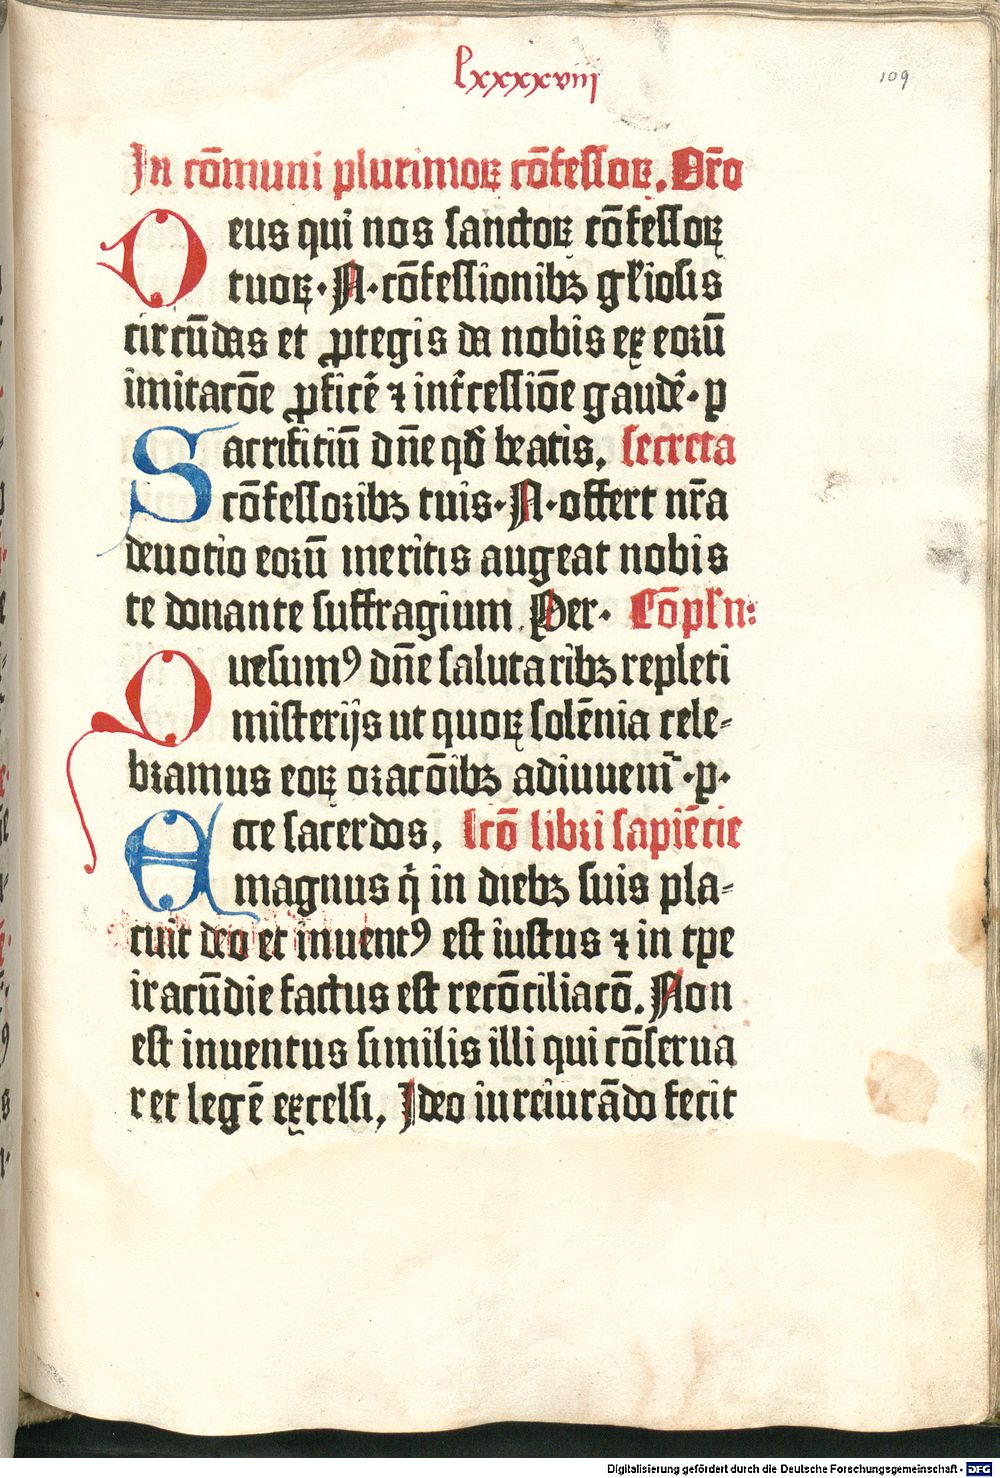 lxxxxviii
109
In cōmuni plurimoꝝ cōfessoꝝ. Or̄o
Deus qui nos sanctoꝝ cōfessoꝝ
tuoꝝ · N · cōfessionibꝫ gl̄iosis
circūdas et ꝓtegis da nobis ex eorū
imitacōe ꝓficē ⁊ int̄cessiōe gaudē · p
Sacrificiū dn̄e qs̄ beatis, secreta
cōfessoribꝫ tuis · N · offert nr̄a
deuotio eorū meritis augeat nobis
te donante suffragium Per · Cōpln̄:
Quesumꝰ dn̄e salutaribꝫ repleti
misterijs ut quoꝝ solēnia cele-
bramus eoꝝ oracōibꝫ adiuuem̄ · p ·
Ecce sacerdos, lcō libri sapiēcie
magnus q̄ in diebꝫ suis pla-
cuit deo et inuentꝰ est iustus ⁊ in tp̄e
iracūdie factus est recōciliacō. Non
est inuentus similis illi qui cōserua
ret legē excelsi, Ideo iureiurādo fecit
Digitalisierung gefördert durch die Deutsche Forschungsgemeinschaft - DFG